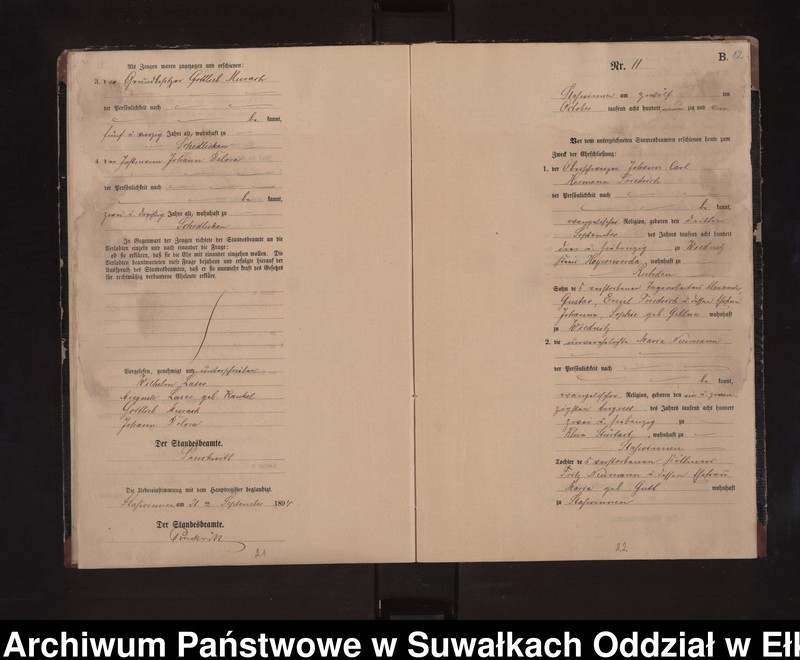 Als Zeugen waren zugezogen und erschienen:
3. der Grundbesitzer Gottlieb Murach
der Persönlichkeit nach
be kannt,
fünf u. vierzig Jahre alt, wohnhaft zu
Schedlisken
4. der Johann
der Persönlichkeit nach
be kannt,
zwei u. dreißig Jahre alt, wohnhaft zu
Schedlisken
In Gegenwart der Zeugen richtete der Standesbeamte an die
Verlobten einzeln und nach einander die Frage:
ob sie erklären, daß sie die Ehe mit einander eingehen wollen. Die
Verlobten beantworteten diese Frage bejahend und erfolgte hierauf der
Ausspruch des Standesbeamten, daß er sie nunmehr kraft des Gesetzes
für rechtmäßig verbundene Eheleute erkläre.
Vorgelesen, genehmigt und unterschrieben
Wilhelm
Auguste geb.
Gottlieb Murach
Johann
Der Standesbeamte.
Die Uebereinstimmung mit dem Hauptregister beglaubigt.
Staßwinnen am 21 ten September 1894
Der Standesbeamte.
21
B. 12
Nr. 11
Staßwinnen am zwölf ten
October tausend acht hundert neun zig und vier
Vor dem unterzeichneten Standesbeamten erschienen heute zum
Zweck der Eheschließung:
1. der Oberschweizer Johann Carl
Hermann Friedrich
der Persönlichkeit nach
be kannt,
evangelischer Religion, geboren den dritten
September des Jahres tausend acht hundert
drei u. siebenzig zu Wiednitz
Kreis Hoyerswerda, wohnhaft zu
Rudo
Sohn des verstorbenen Tagearbeiters
Gustav, Emil Friedrich u. dessen Ehefrau
Johanna, Sophie geb. wohnhaft
zu Wiednitz
2. die unverehelichte Maria Neumann
der Persönlichkeit nach
be kannt,
evangelischer Religion, geboren den ein u. zwan
zigsten August des Jahres tausend acht hundert
zwei u. siebenzig zu
Klein Stürlack, wohnhaft zu
Staßwinnen
Tochter des verstorbenen
Fritz Neumann u. dessen Ehefrau
Maria geb. wohnhaft
zu Staßwinnen
22
Archiwum Państwowe w Suwałkach Oddział w Ełk